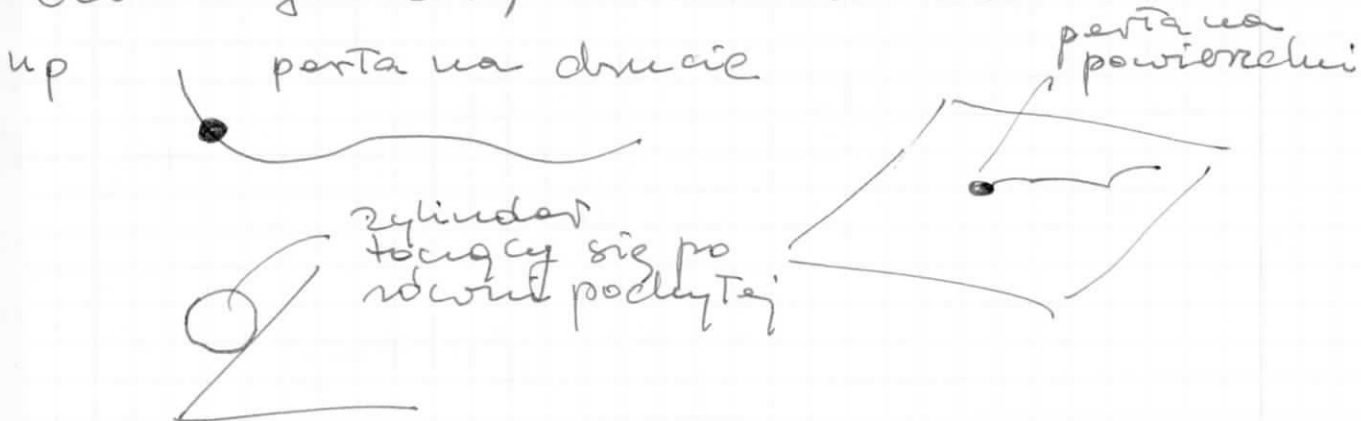 np
perła na drucie
perła na
powierzchni
zylinder
toczący się po
równi pochyłej